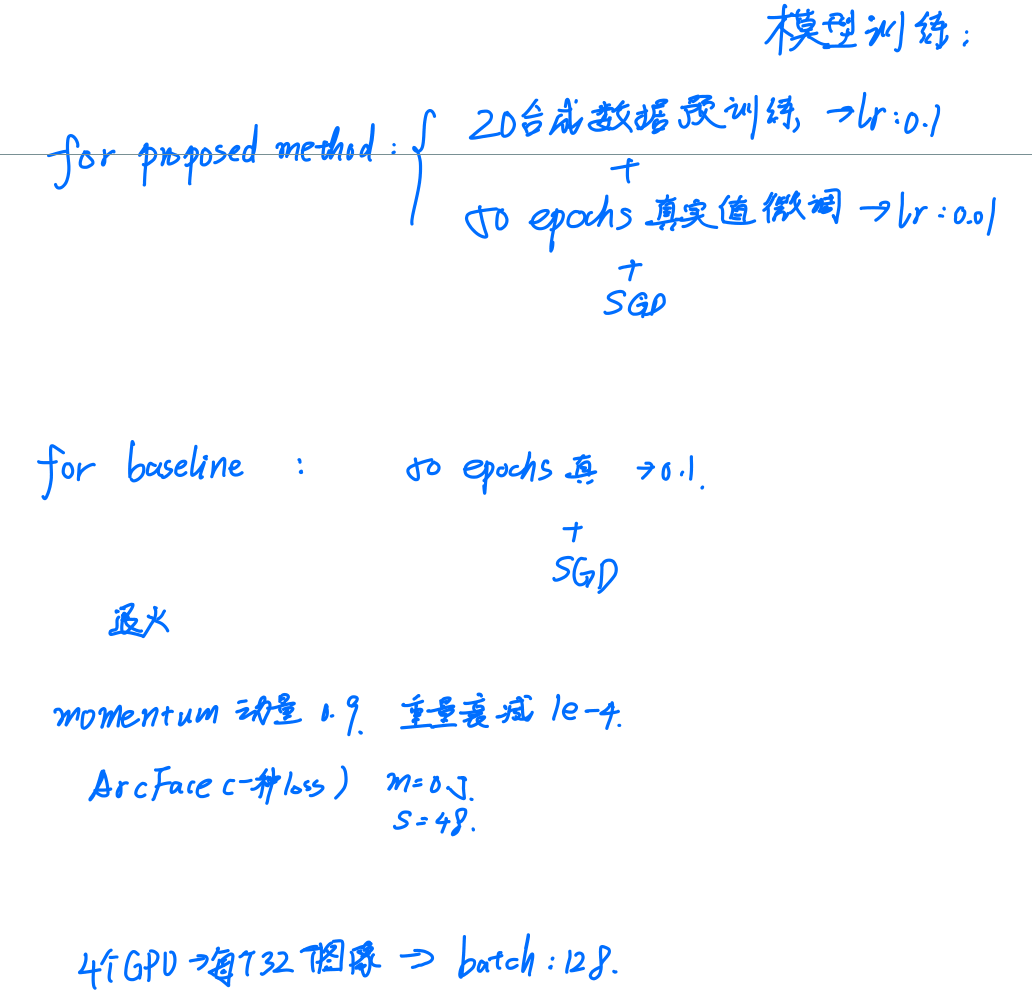 模型训练:
for proposed method: { 20合成数据预训练 →lr:0.1
+
50 epochs 真实值微调 →lr:0.01
+
SGD
for baseline : 50 epochs 真 →0.1.
+
SGD
退火
momentum 动量 0.9. 重量衰减 1e-4.
ArcFace (一种loss) m=0.5.
s=48.
4个GPU→每个32个图像 → batch:128.